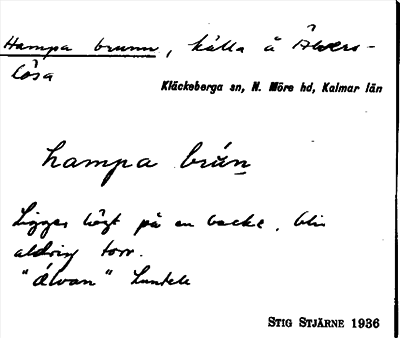 Hampa brunn, källa å Älvers-
lösa
Kläckeberga sn, N. Möre hd, Kalmar län
hampa brún
Ligger högt på en backe, blir
aldrig torr.
"álvan"
STIG STJÄRNE 1936